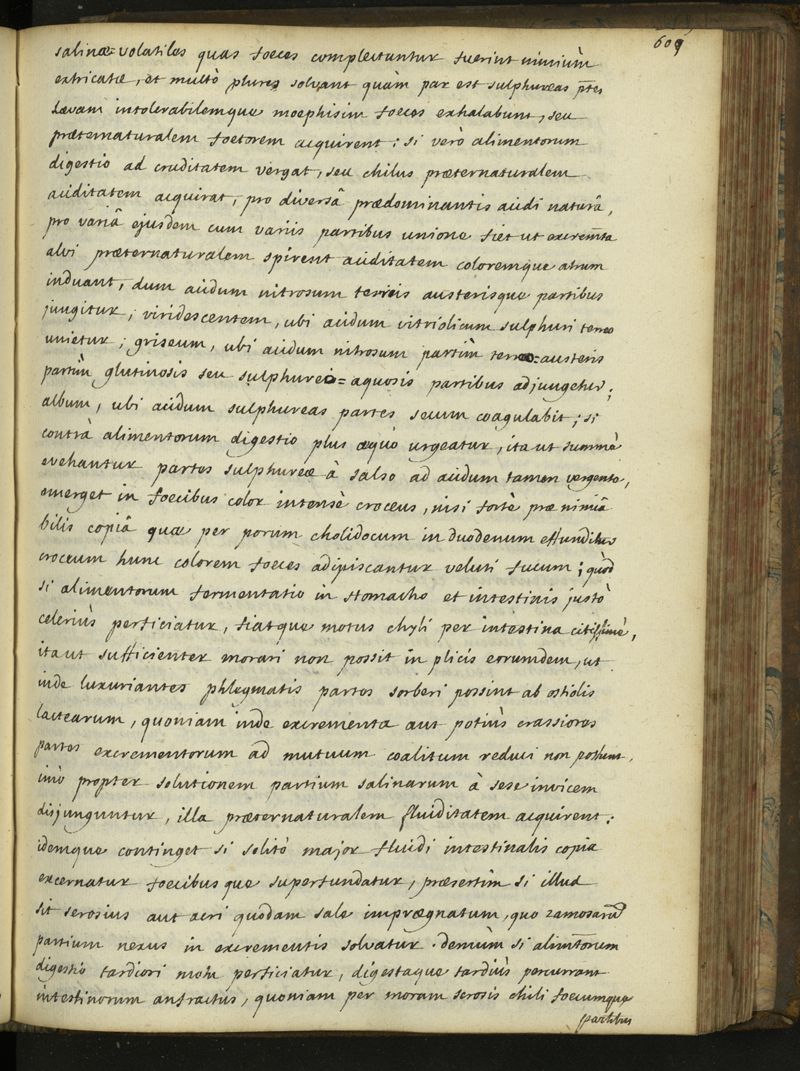 609
salinæ-volatiles quas foeces complectuntur fuerint nimiùm
extricatæ, et multò plures solvant quàm par est sulphureas ptes
sævam intolerabilemque moephisim foeces exhalabunt, seu
præternaturalem foetorem acquirent; si verò alimentorum
digestio ad cruditatem vergat, seu chilus præternaturalem
aciditatem acquirat, pro diversâ prædominantis acidi naturâ,
pro variâ ejusdem cum variis partibus unione fiet ut excremta
alvi præternaturalem spirent aciditatem coloremque atrum
induant, dum acidum nitrosum terreis austerisque partibus
jungitur; viridescentem, ubi acidum vitriolicum sulphuri terreo
unietur; griseum, ubi acidum nitrosum partìm terreo=austeris
partìm glutinosis seu sulphureo=aquosis partibus adjungetur;
album, ubi acidum sulphureas partes secum coagulabit; si
contrà alimentorum digestio plus æquò urgeatur, ita ut summè
evehantur partes sulphureæ à salso ad acidum tamen vergente,
emerget in foecibus color intensè croceus, nisi fortè præ nimiâ
bilis copiâ quæ per porum cholidocum in duodenum effunditur
croceum hunc colorem foeces adipiscantur veluti fucum; quòd
si alimentorum fermentatio in stomacho et intestinis justò
celeriùs perficiatur, fiatque motus chyli per intestina citissimè,
ita ut sufficienter morari non possit in plicis eorumdem, ut
inde luxuriantes phlegmatis partes sorberi possint ab ostiolis
lactearum, quoniam inde excrementa aut potiùs crassiores
partes excrementorum ad mutuum coalitum reduci non possunt,
imò propter solutionem partium salinarum à sese invicem
disjunguntur, illa præternaturalem fluiditatem acquirent:
idemque continget si solitò major fluidi intestinalis copia
excernatur foecibusque superfundatur, præsertim si illud
sit serosius aut acri quodam sale imprægnatum, quo ramosarū
partium nexus in excrementis solvatur. demùm si alimtorum
digestio tardiori motu perficiatur, digestaque tardiùs percurrant
intestinorum anfractus, quoniam per moram serosis chili foecumque
partibus